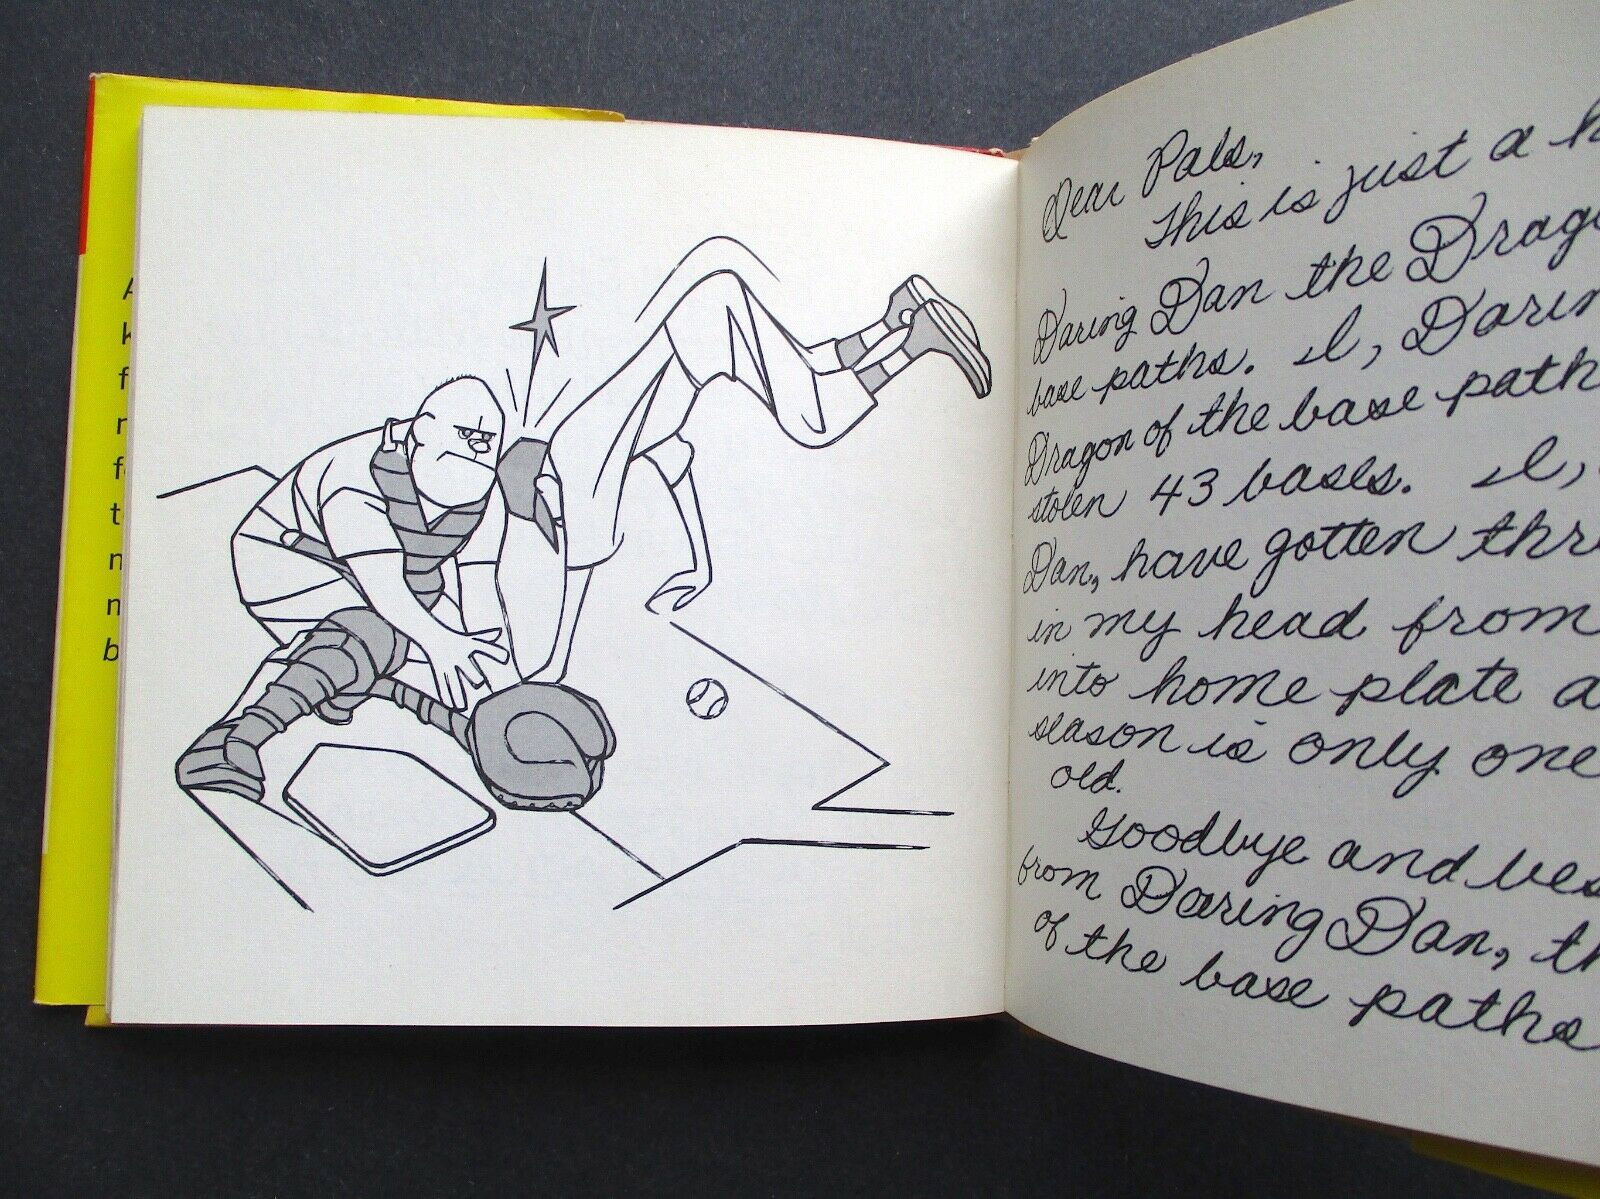 Dear Pals,
This is just a
Daring Dan the
base paths. I,
Dragon of the base
stolen 43 bases. I,
Dan, have gotten
in my head from
into home plate
season is only one
old.
Goodbye and
from Daring Dan,
of the base paths